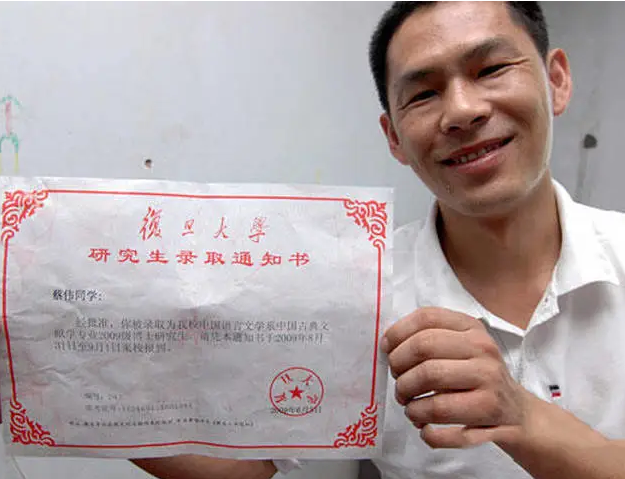 復旦大學
研究生录取通知书
蔡伟同学:
经批准，你被录取为我校中国语言文学系中国古典文
献学专业2009级博士研究生。请凭本通知书于2009年8月
31日至9月1日来校报到。
编号:
复旦大学
2009年6月15日